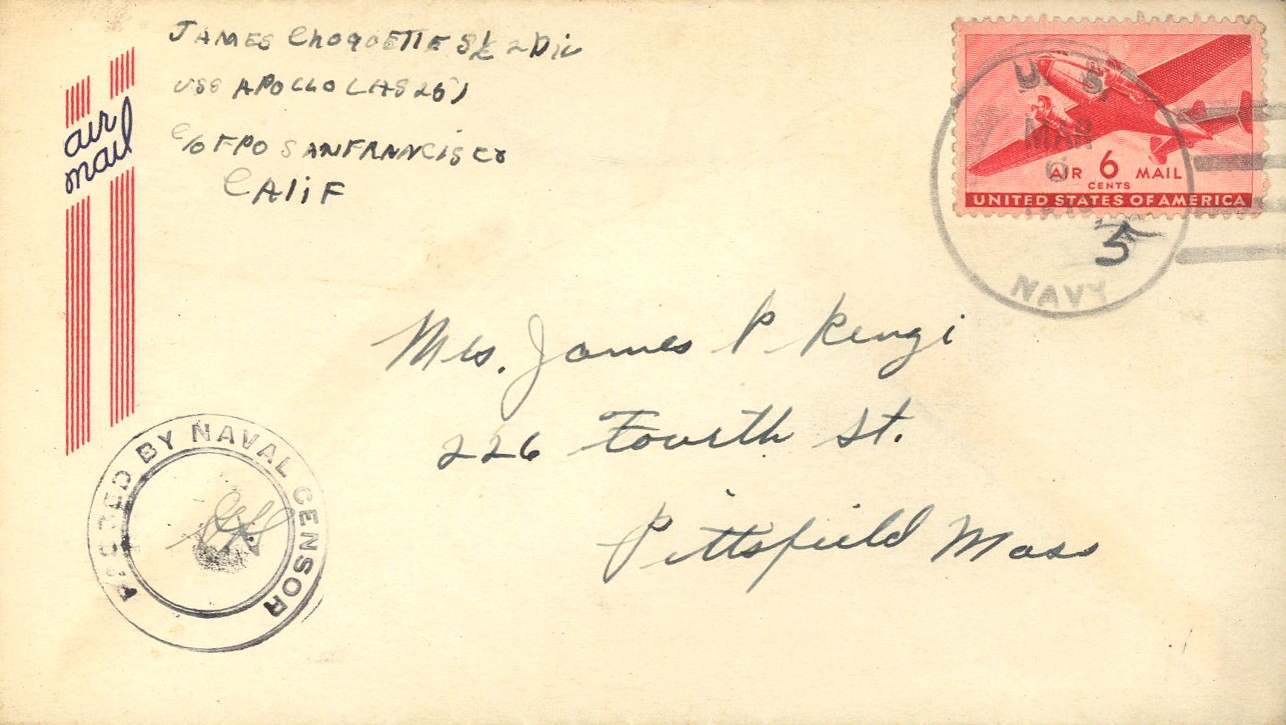 JAMES CHOQUETTE S1/c 2 Div
USS APOLLO (AS 25)
c/o FPO SANFRANCISCO
CALIF
air
mail
U. S.
MAR
NAVY
5
AIR 6 MAIL
CENTS
UNITED STATES OF AMERICA
Mrs. James P Rengi
226 Fourth St.
Pittsfield Mass
PASSED BY NAVAL CENSOR